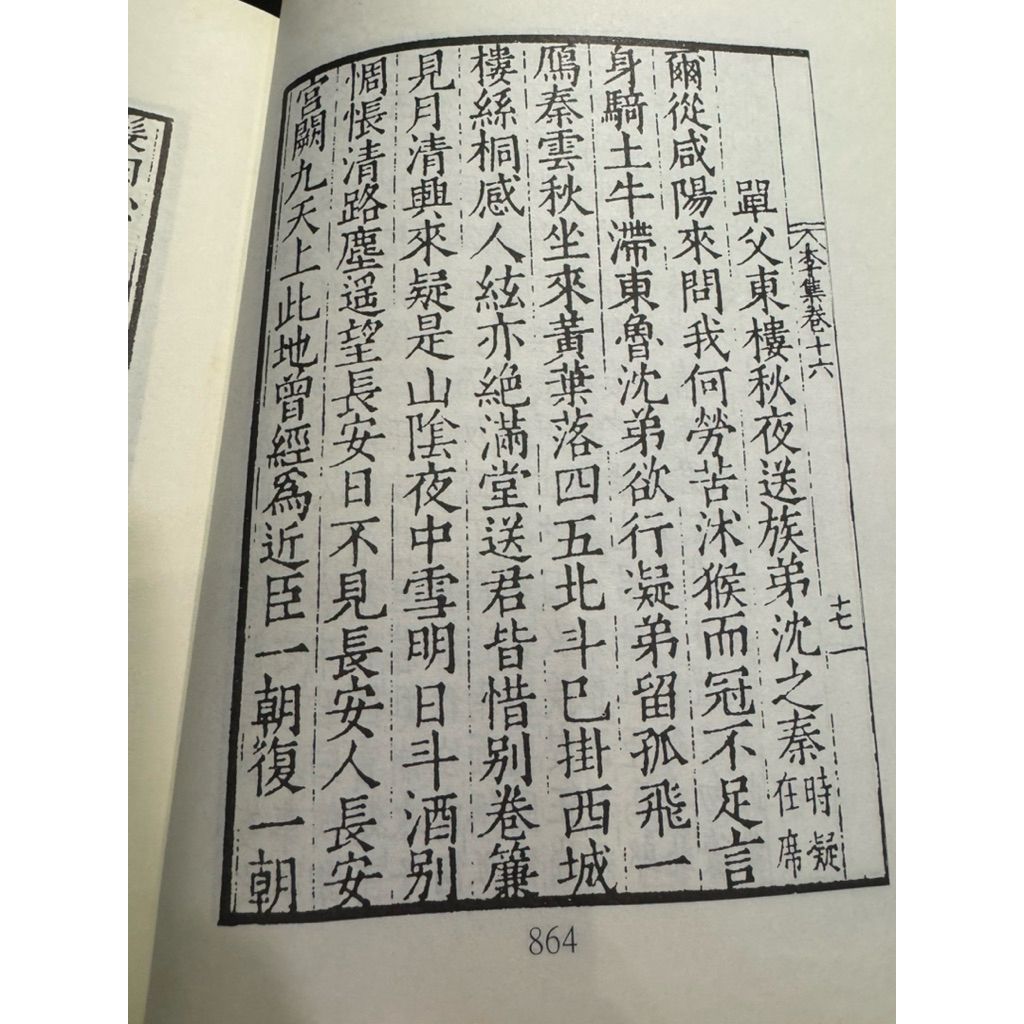 李集卷十六
十七
單父東樓秋夜送族弟沈之秦時凝在席
爾從咸陽來問我何勞苦沐猴而冠不足言
身騎土牛滯東魯沈弟欲行凝弟留孤飛一
鴈秦雲秋坐來黃葉落四五北斗巳掛西城
樓絲桐感人絃亦絕滿堂送君皆惜別卷簾
見月清興來疑是山陰夜中雪明日斗酒別
惆悵清路塵遥望長安日不見長安人長安
宮闕九天上此地曾經爲近臣一朝復一朝
864